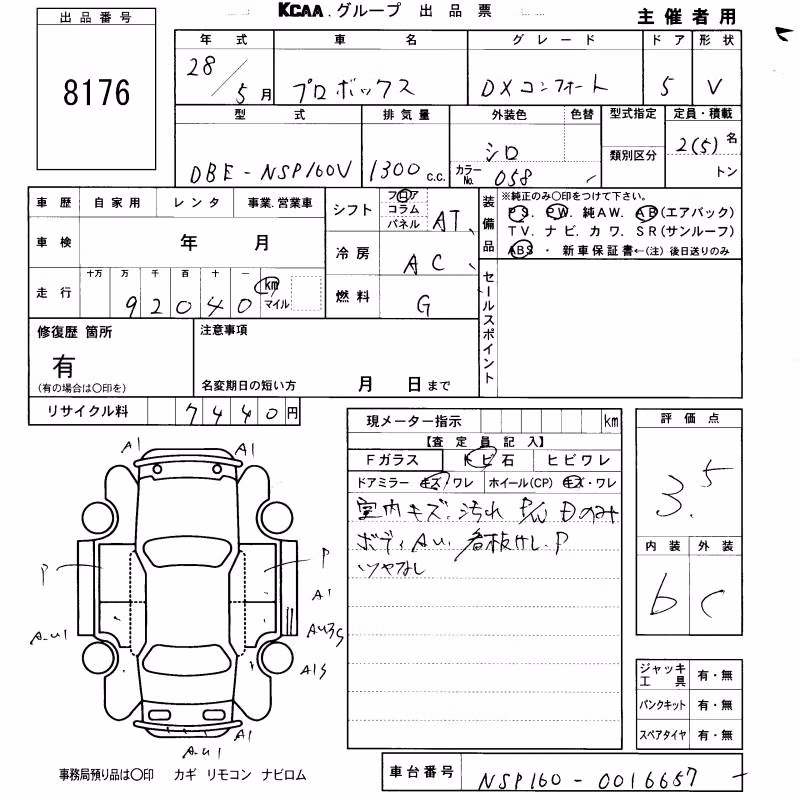 出品番号
8176
KCAA.グループ 出品票
主催者用
年式 車名 グレード ドア 形状
28/5月 プロボックス DXコンフォート 5 V
型式 排気量 外装色 色替 型式指定 定員・積載
DBE-NSP160V 1300c.c. シロ 類別区分 2(5)名
カラーNo. 058 トン
車歴 自家用 レンタ 事業.営業車
車検 年 月
走行 十万 万 千 百 十 一
92040 km マイル
シフト フロア コラム パネル AT
冷房 AC
燃料 G
装備品
※純正のみ〇印をつけて下さい。
PS. PW. 純AW. AB(エアバック)
TV. ナビ. カワ. SR(サンルーフ)
ABS ・ 新車保証書←(注) 後日送りのみ
セールスポイント
修復歴 箇所
有
(有の場合は〇印を)
注意事項
名変期日の短い方 月 日まで
リサイクル料 7440円
現メーター指示 km
【査定員記入】
Fガラス トビ石 ヒビワレ
ドアミラー キズ/ワレ ホイール(CP) キズ・ワレ
室内キズ.汚れ P/W Dのみ
ボディAu. 看板ケし.P
ツヤなし
評価点
3.5
内装 外装
b c
ジャッキ工具 有・無
パンクキット 有・無
スペアタイヤ 有・無
A1 A1
P P
A1
Au1 Au3S
A1S
Au1 A1
事務局預り品は〇印 カギ リモコン ナビロム
車台番号 NSP160-0016657